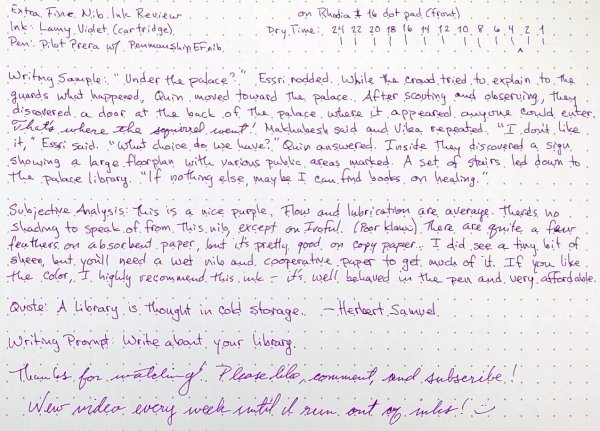 Extra Fine Nib Ink Review
on Rhodia # 16 dot pad (front)
Ink: Lamy Violet (cartridge)
Dry Time: 24 22 20 18 16 14 12 10 8 6 4 2 1
Pen: Pilot Prera w/ Penmanship EF nib
Writing Sample: "Under the palace?" Essri nodded. While the crowd tried to explain to the
guards what happened, Quin moved toward the palace. After scouting and observing, they
discovered a door at the back of the palace where it appeared anyone could enter.
That's where the squirrel went! Makhabesh said and Vilea repeated. "I don't like
it," Essri said. "What choice do we have?" Quin answered. Inside they discovered a sign
showing a large floorplan with various public areas marked. A set of stairs led down to
the palace library. "If nothing else, maybe I can find books on healing."
Subjective Analysis: This is a nice purple. Flow and lubrication are average. There's no
shading to speak of from this nib, except on Iroful. (Poor klaw). There are quite a few
feathers on absorbent paper, but it's pretty good on copy paper. I did see a tiny bit of
sheen, but you'll need a wet nib and cooperative paper to get much of it. If you like
the color, I highly recommend this ink - it's well behaved in the pen and very affordable.
Quote: A library is thought in cold storage. - Herbert Samuel
Writing Prompt: Write about your library.
Thanks for watching! Please like, comment, and subscribe!
New video every week until I run out of inks! :-)